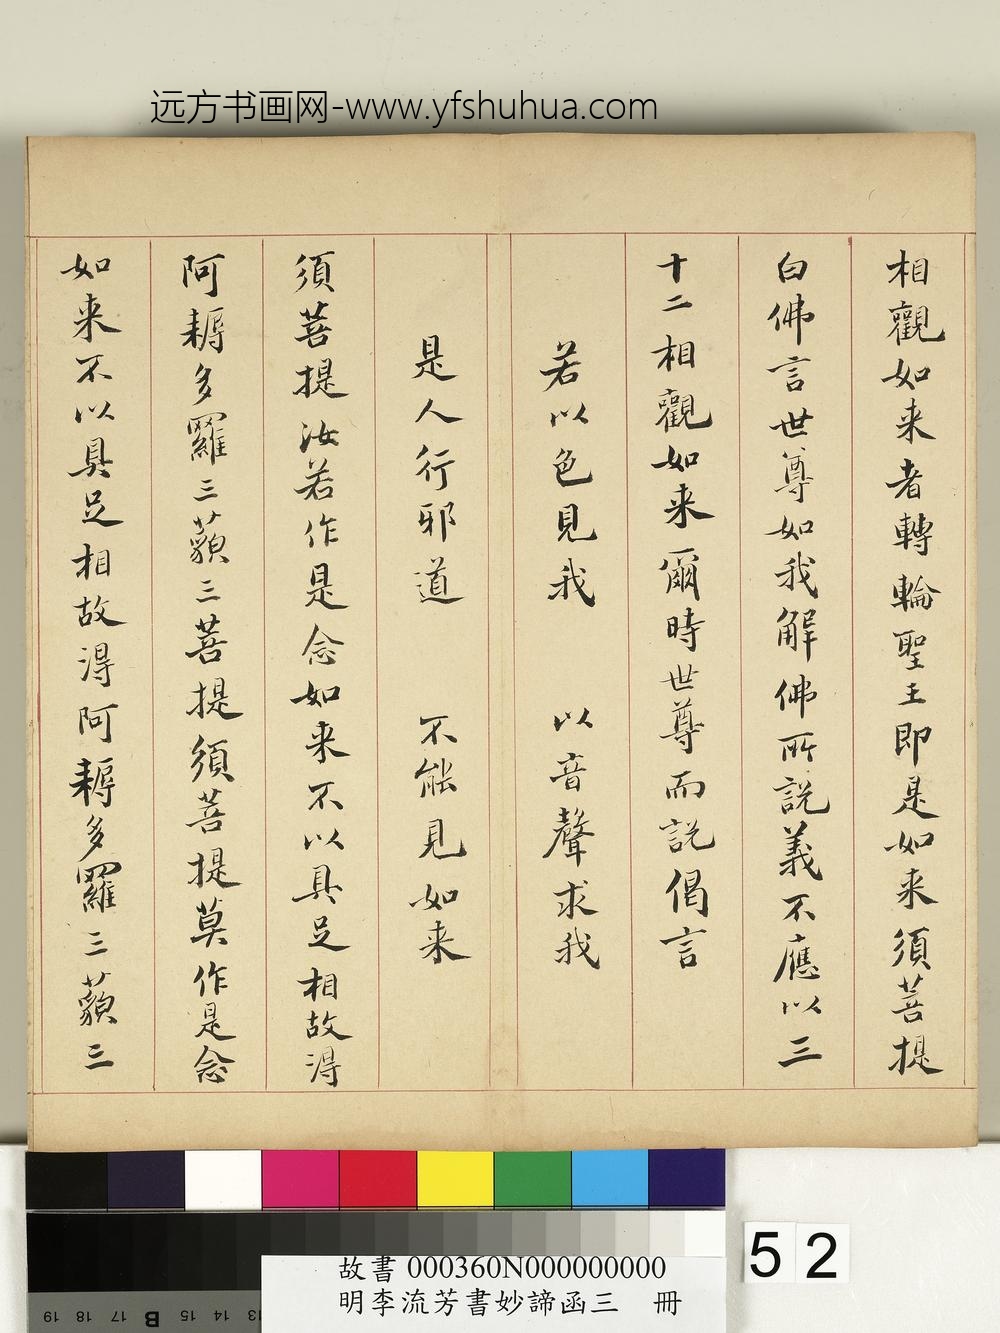 远方书画网-www.yfshuhua.com
相觀如来者轉輪聖王即是如来須菩提
白佛言世尊如我解佛所説義不應以三
十二相觀如来爾時世尊而説偈言
若以色見我　以音聲求我
是人行邪道　不能見如来
須菩提汝若作是念如来不以具足相故得
阿耨多羅三藐三菩提須菩提莫作是念
如来不以具足相故得阿耨多羅三藐三
52
故書 000360N000000000
明李流芳書妙諦函三　冊
19 18 17 B 15 14 13